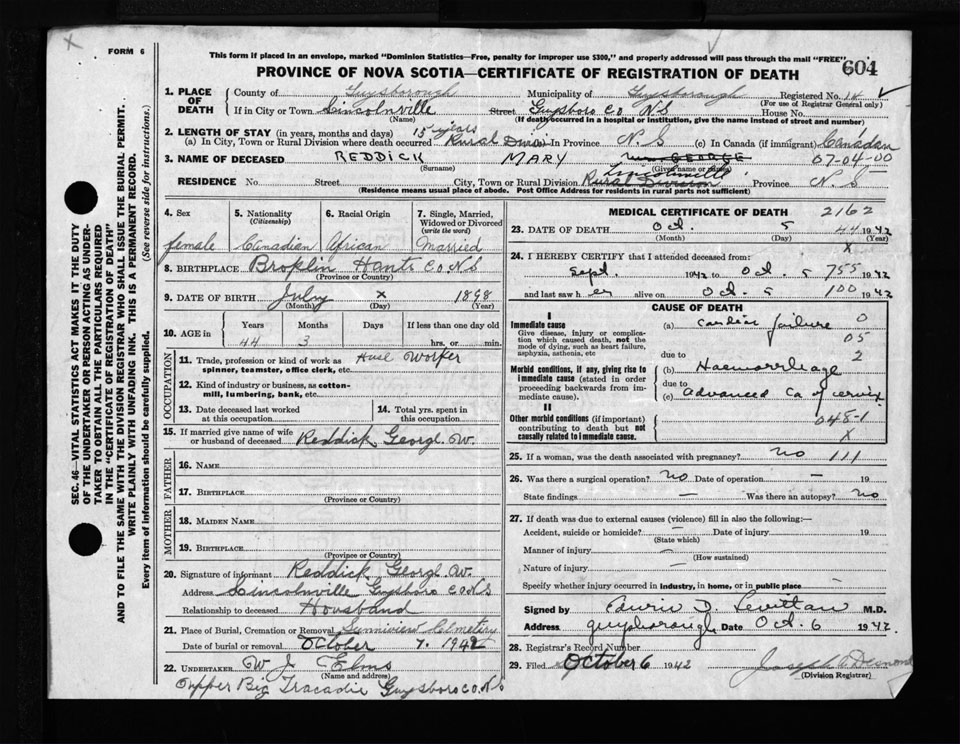 FORM 6
This form if placed in an envelope, marked "Dominion Statistics—Free, penalty for improper use $300," and properly addressed will pass through the mail "FREE"
604
PROVINCE OF NOVA SCOTIA—CERTIFICATE OF REGISTRATION OF DEATH
1. PLACE OF DEATH County of Guysborough Municipality of Guysborough Registered No. 14
(For use of Registrar General only)
If in City or Town Lincolnville Street Guysboro Co N.S House No.
(Name) (If death occurred in a hospital or institution, give the name instead of street and number)
2. LENGTH OF STAY (in years, months and days) 15 years
(a) In City, Town or Rural Division where death occurred Rural In Province N.S (c) In Canada (if immigrant) Canadan
3. NAME OF DECEASED REDDICK MARY Mrs GEORGE 07-04-00
(Surname) (Given name or names)
RESIDENCE No. Street City, Town or Rural Division Lincolnville Rural Division Province N.S
(Residence means usual place of abode. Post Office Address for residents in rural parts not sufficient)
4. Sex female
5. Nationality (Citizenship) Canadian
6. Racial Origin African
7. Single, Married, Widowed or Divorced (write the word) Married
8. BIRTHPLACE Broplin Hants Co N.S
(Province or Country)
9. DATE OF BIRTH July x 1898
(Month) (Day) (Year)
10. AGE in Years Months Days If less than one day old
44 3 hrs. or min.
OCCUPATION
11. Trade, profession or kind of work as spinner, teamster, office clerk, etc. Huse Worker
12. Kind of industry or business, as cotton-mill, lumbering, bank, etc.
13. Date deceased last worked at this occupation
14. Total yrs. spent in this occupation
15. If married give name of wife or husband of deceased Reddick Georgl W.
FATHER
16. NAME
17. BIRTHPLACE
(Province or Country)
MOTHER
18. MAIDEN NAME
19. BIRTHPLACE
(Province or Country)
20. Signature of informant Reddick Georgl W.
Address Lincolnville Guysboro Co N.S
Relationship to deceased Housband
21. Place of Burial, Cremation or Removal Sunniview Cemetery
Date of burial or removal October 7. 1942
22. UNDERTAKER W J Elms
(Name and address)
Upper Big Tracadie Guysboro Co. N.S
MEDICAL CERTIFICATE OF DEATH 2162
23. DATE OF DEATH Oct. 5 44 1942
(Month) (Day) (Year)
x
24. I HEREBY CERTIFY that I attended deceased from:
Sept. 1942 to Oct. 5 755 1942
and last saw h er alive on Oct. 5 100 1942
CAUSE OF DEATH
I
Immediate cause (a) Cardiac failure 0
Give disease, injury or complication which caused death, not the mode of dying, such as heart failure, asphyxia, asthenia, etc
05
due to 2
Morbid conditions, if any, giving rise to immediate cause (stated in order proceeding backwards from immediate cause).
(b) Haemorrhage
due to
(c) Advanced Ca of cervix
II
Other morbid conditions (if important) contributing to death but not causally related to immediate cause.
048-1
x
25. If a woman, was the death associated with pregnancy? no 111
26. Was there a surgical operation? no Date of operation — 19
State findings — Was there an autopsy? no
27. If death was due to external causes (violence) fill in also the following:—
Accident, suicide or homicide? — Date of injury 19
(State which)
Manner of injury —
(How sustained)
Nature of injury —
Specify whether injury occurred in industry, in home, or in public place —
Signed by Edwin D. Levittan M.D.
Address guysborough Date Oct. 6 1942
28. Registrar's Record Number
29. Filed October 6 1942 Joseph A Desmond
(Division Registrar)
SEC. 46—VITAL STATISTICS ACT MAKES IT THE DUTY
OF THE UNDERTAKER OR PERSON ACTING AS UNDER-
TAKER TO OBTAIN ALL THE PARTICULARS REQUIRED
IN THE "CERTIFICATE OF REGISTRATION OF DEATH"
AND TO FILE THE SAME WITH THE DIVISION REGISTRAR WHO SHALL ISSUE THE BURIAL PERMIT.
WRITE PLAINLY WITH UNFADING INK. THIS IS A PERMANENT RECORD.
Every item of information should be carefully supplied. (See reverse side for instructions.)